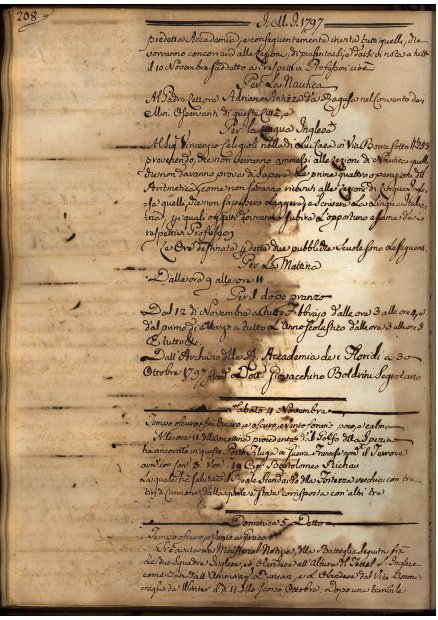 208
A. M. D. 1797
predetta Accademia, e conseguentemente invita tutti quelli, che
vorranno concorrere alle Lezioni, di presentarsi da di a tutto
il 10 Novembre suddetto a' respettivi Professori cioè
Per La Nautica
Al Padre Lettore Adriano da Ragusa nel Convento de
Min. Osservanti di questa Città, e
Per la Lingua Inglese
Al Sig. Vincenzo nella di Lui Casa in Via Borra Sotto N. 293
prevenendo, che non saranno ammessi alle Lezioni di Nautica quelli
che non daranno prova di sapere le prime quattro operazioni dell'
Aritmetica, come non saranno ricevuti alle Lezioni di Lingua Ingle
se quelli, che non sapessero Leggere, e scrivere La Lingua Italia
na, i quali oggetti dovranno subire L'opportuno esame da'
respettivi Professori
Le Ore destinate a dette due pubbliche Scuole sono Le seguenti
Per La Mattina
Dalle ore 9 alle ore 11
Per il dopo pranzo
Dal 12 di Novembre a tutto Febbrajo dalle ore 3 alle ore 4, e
dal primo di Marzo a tutto L'anno scolastico dalle ore 3 alle ore 5
E tutto &c.
Dall'Archivio della Accademia de i Floridi a 30
Ottobre 1797 Dott. Giovacchino Boldrini Segretario
Sabato 4 Novembre
Tempo oscuro, e Vento poco, e calma
Alle ore 11 della mattina procedente dal Golfo della Spezia
ha ancorato in questo Porto da Guerra Francese nom.
con Can. 8 Uom. Cap. Bartolomeo
La quale ha salutato il Reale Stendardo della Fortezza vecchia con tre
tiri di Cannone, dalla quale è stata corrisposta con altri tre
Domenica 5 Detto
Tempo oscuro, e Vento a
Si è avuto La Ministerial Notizia, della Battaglia Seguita frà
le due Squadre Inglese, ed Olandese all'Altura del Texel L'Inglese
comandata dall'Ammiraglio Duncan, e L'Olandese dal Vice Ammi
raglio de Winter il dì 11 dello scorso Ottobre. Dopo una terribile